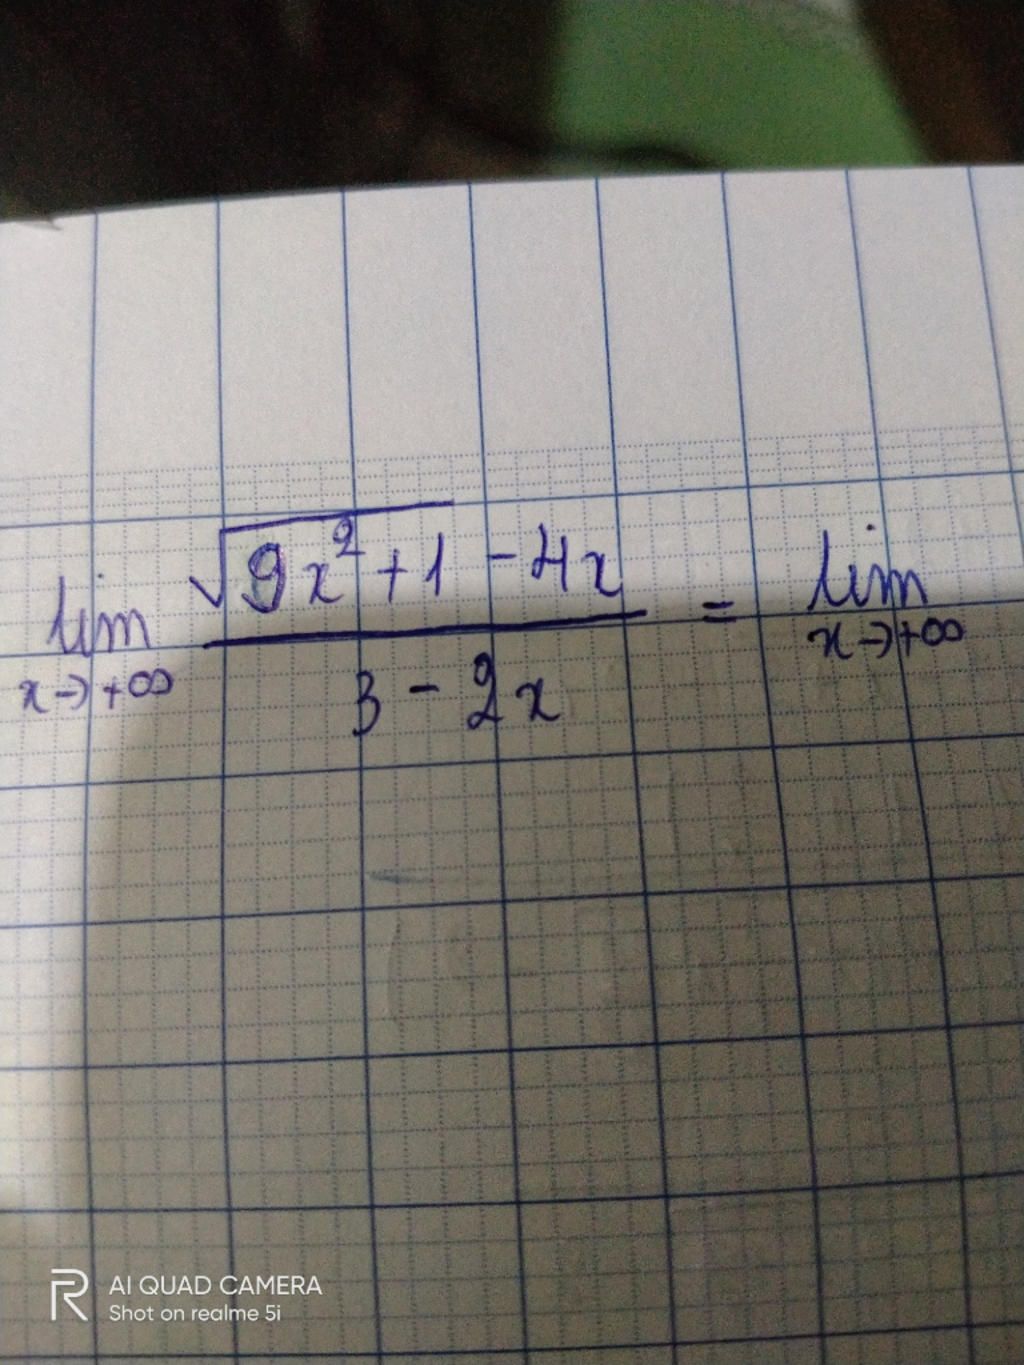 lim x→+∞ (√(9x² + 1) - 4x) / (3 - 2x) = lim x→+∞
AI QUAD CAMERA
Shot on realme 5i